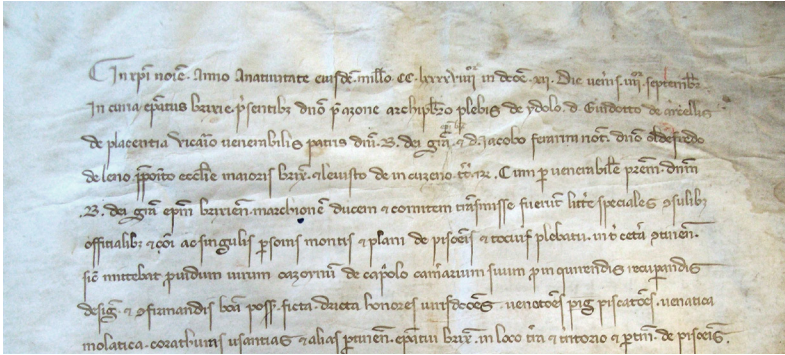 In xpi noie. Anno Anativitate eiusde. millo CC. lxxxxviiij indcoe. xij. Die veneris. iiij. septenbr.
In curia epatus brixie. psentibz dno pazone archipbro plebis de ydolo. d. Guidotto de
de placentia vicario venerabilis patris dni. B. dei gra. & d. Iacobo ferarini not. dno oldefredo
de leno pposito ecclie maioris brix. & levisto de incuzeno. tt. & r. Cum p venerabile prem. dnm
.B. dei gra epm brixien. marchione ducem & comitem transmisse fuerut litte speciales 9sulibz
officialibz & coi ac singulis psonis montis & plani de pisoeis & tocius plebatu. in cetera 9tinen.
sic mittebat pvidum virum cazoinum de capolo camarium suum p inquirendis recupandis
desig. & 9firmandis bona poss. ficta. dricta honores iurisdcoes. venatoes pig piscatoes. venatica
molatica. coratburis usantias & alias ptinen. epatui brix. in loco tra & titorio & ptin. de pisoeis.